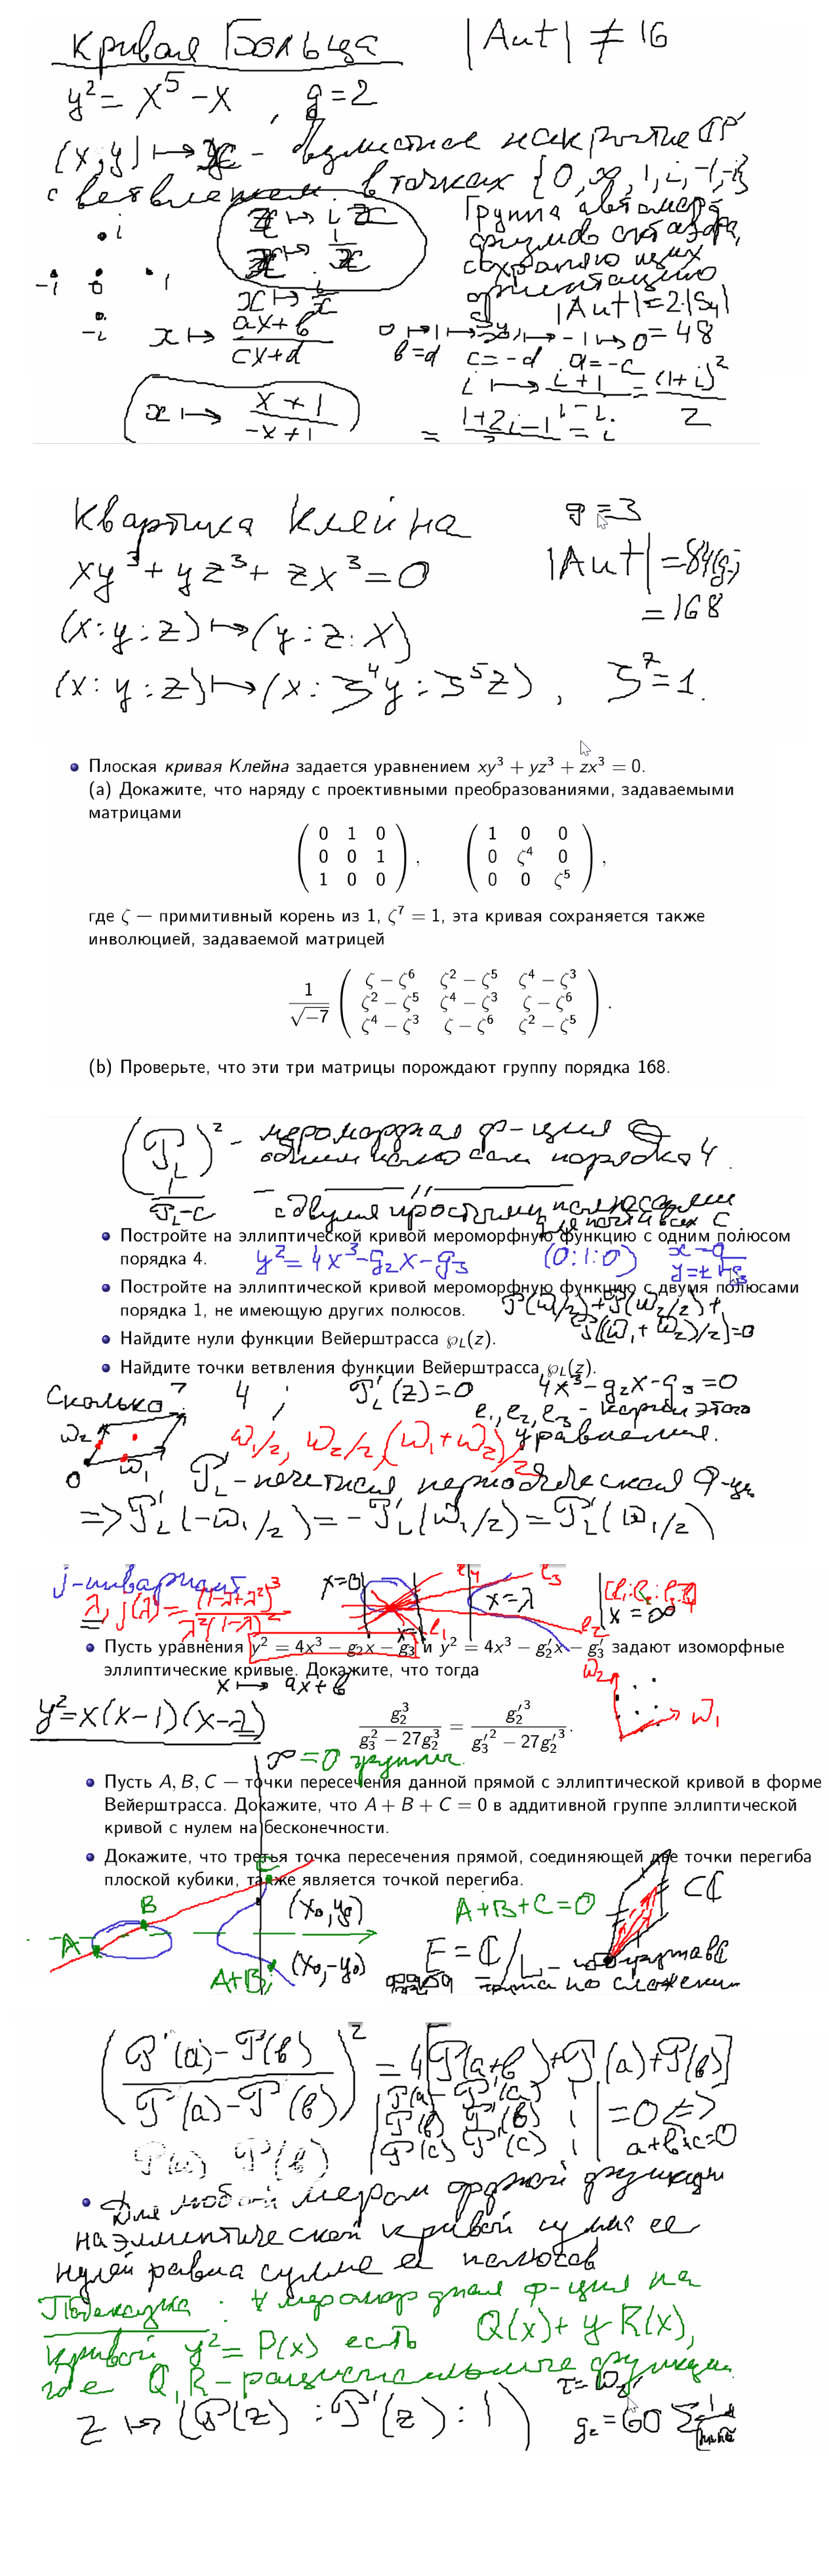 Кривая Больца |Aut| ≠ 16
y² = x⁵ - x , g = 2
(x,y) ↦ x - двулистное накрытие ℂP¹
с ветвлением в точках {0, ∞, 1, i, -1, -i}
x ↦ ix
x ↦ 1/x
x ↦ i/x
Группа автоморфизмов октаэдра, сохраняющих ориентацию
|Aut| = 2·|S₄| = 48
i
-1 0 1
-i
x ↦ (ax+b)/(cx+d)
0 ↦ 1 ↦ ∞ ↦ -1 ↦ 0
b=d c=-d a=-c
x ↦ (x+1)/(-x+1)
i ↦ (i+1)/(1-i) = (1+i)²/2
= (1+2i-1)/2 = i
Квартика Клейна g = 3
xy³ + yz³ + zx³ = 0
|Aut| = 84(g-1)
= 168
(x:y:z) ↦ (y:z:x)
(x:y:z) ↦ (x:ζ⁴y:ζ⁵z) , ζ⁷=1.
• Плоская кривая Клейна задается уравнением xy³ + yz³ + zx³ = 0.
(a) Докажите, что наряду с проективными преобразованиями, задаваемыми
матрицами
0 1 0   1 0 0
0 0 1 ,   0 ζ⁴ 0 ,
1 0 0   0 0 ζ⁵
где ζ — примитивный корень из 1, ζ⁷ = 1, эта кривая сохраняется также
инволюцией, задаваемой матрицей
ζ − ζ⁶ ζ² − ζ⁵ ζ⁴ − ζ³
1/√−7 ζ² − ζ⁵ ζ⁴ − ζ³ ζ − ζ⁶ .
ζ⁴ − ζ³ ζ − ζ⁶ ζ² − ζ⁵
(b) Проверьте, что эти три матрицы порождают группу порядка 168.
(℘_L)² - мероморфная ф-ция с
одним полюсом порядка 4.
1/(℘_L - c) - // -
с двумя простыми полюсами
для почти всех c
• Постройте на эллиптической кривой мероморфную функцию с одним полюсом
порядка 4. y² = 4x³ - g₂x - g₃ (0:1:0) x=0
• Постройте на эллиптической кривой мероморфную функцию с двумя полюсами
порядка 1, не имеющую других полюсов. ℘(ω₁/2)+℘(ω₂/2)+
℘((ω₁+ω₂)/2)=0
• Найдите нули функции Вейерштрасса ℘_L(z).
• Найдите точки ветвления функции Вейерштрасса ℘_L(z).
Сколько? 4 ; ℘'_L(z)=0 4x³-g₂x-g₃=0
e₁, e₂, e₃ - корни этого
уравнения.
ω₂ 0 ω₁ ω₁/2, ω₂/2, (ω₁+ω₂)/2
℘'_L - нечетная периодическая ф-ция
=> ℘'_L(-ω₁/2) = -℘'_L(ω₁/2) = ℘'_L(ω₁/2)
j-инвариант
λ, j(λ) = (1-λ+λ²)³/λ²(1-λ)²
x=0 x=λ x=∞
l₁ l₂ l₃ l₄
• Пусть уравнения y² = 4x³ − g₂x − g₃ и y² = 4x³ − g₂′x − g₃′ задают изоморфные
эллиптические кривые. Докажите, что тогда
x ↦ ax+b
y² = x(x-1)(x-λ)
g₂³/(g₃² − 27g₂³) = g₂′³/(g₃′² − 27g₂′³).
ω₂ ω₁
∞ = 0 группы
• Пусть A, B, C — точки пересечения данной прямой с эллиптической кривой в форме
Вейерштрасса. Докажите, что A + B + C = 0 в аддитивной группе эллиптической
кривой с нулем на бесконечности.
• Докажите, что третья точка пересечения прямой, соединяющей две точки перегиба
плоской кубики, также является точкой перегиба.
A B C (x₀,y₀) A+B+C=0 ⊂ℂ
A+B (x₀,-y₀) E = ℂ/L
по сложению
((℘'(a)-℘'(b))/(℘(a)-℘(b)))² = 4[℘(a+b)+℘(a)+℘(b)]
℘(a) ℘'(a) 1
℘(b) ℘'(b) 1 = 0 <=>
℘(c) ℘'(c) 1 a+b+c=0
• Для любой мероморфной функции
на эллиптической кривой сумма ее
нулей равна сумме ее полюсов
Подсказка: ∀ мероморфная ф-ция на
кривой y² = P(x) есть Q(x)+yR(x),
где Q, R - рациональные функции.
z ↦ (℘(z) : ℘'(z) : 1) g₂ = 60 Σ